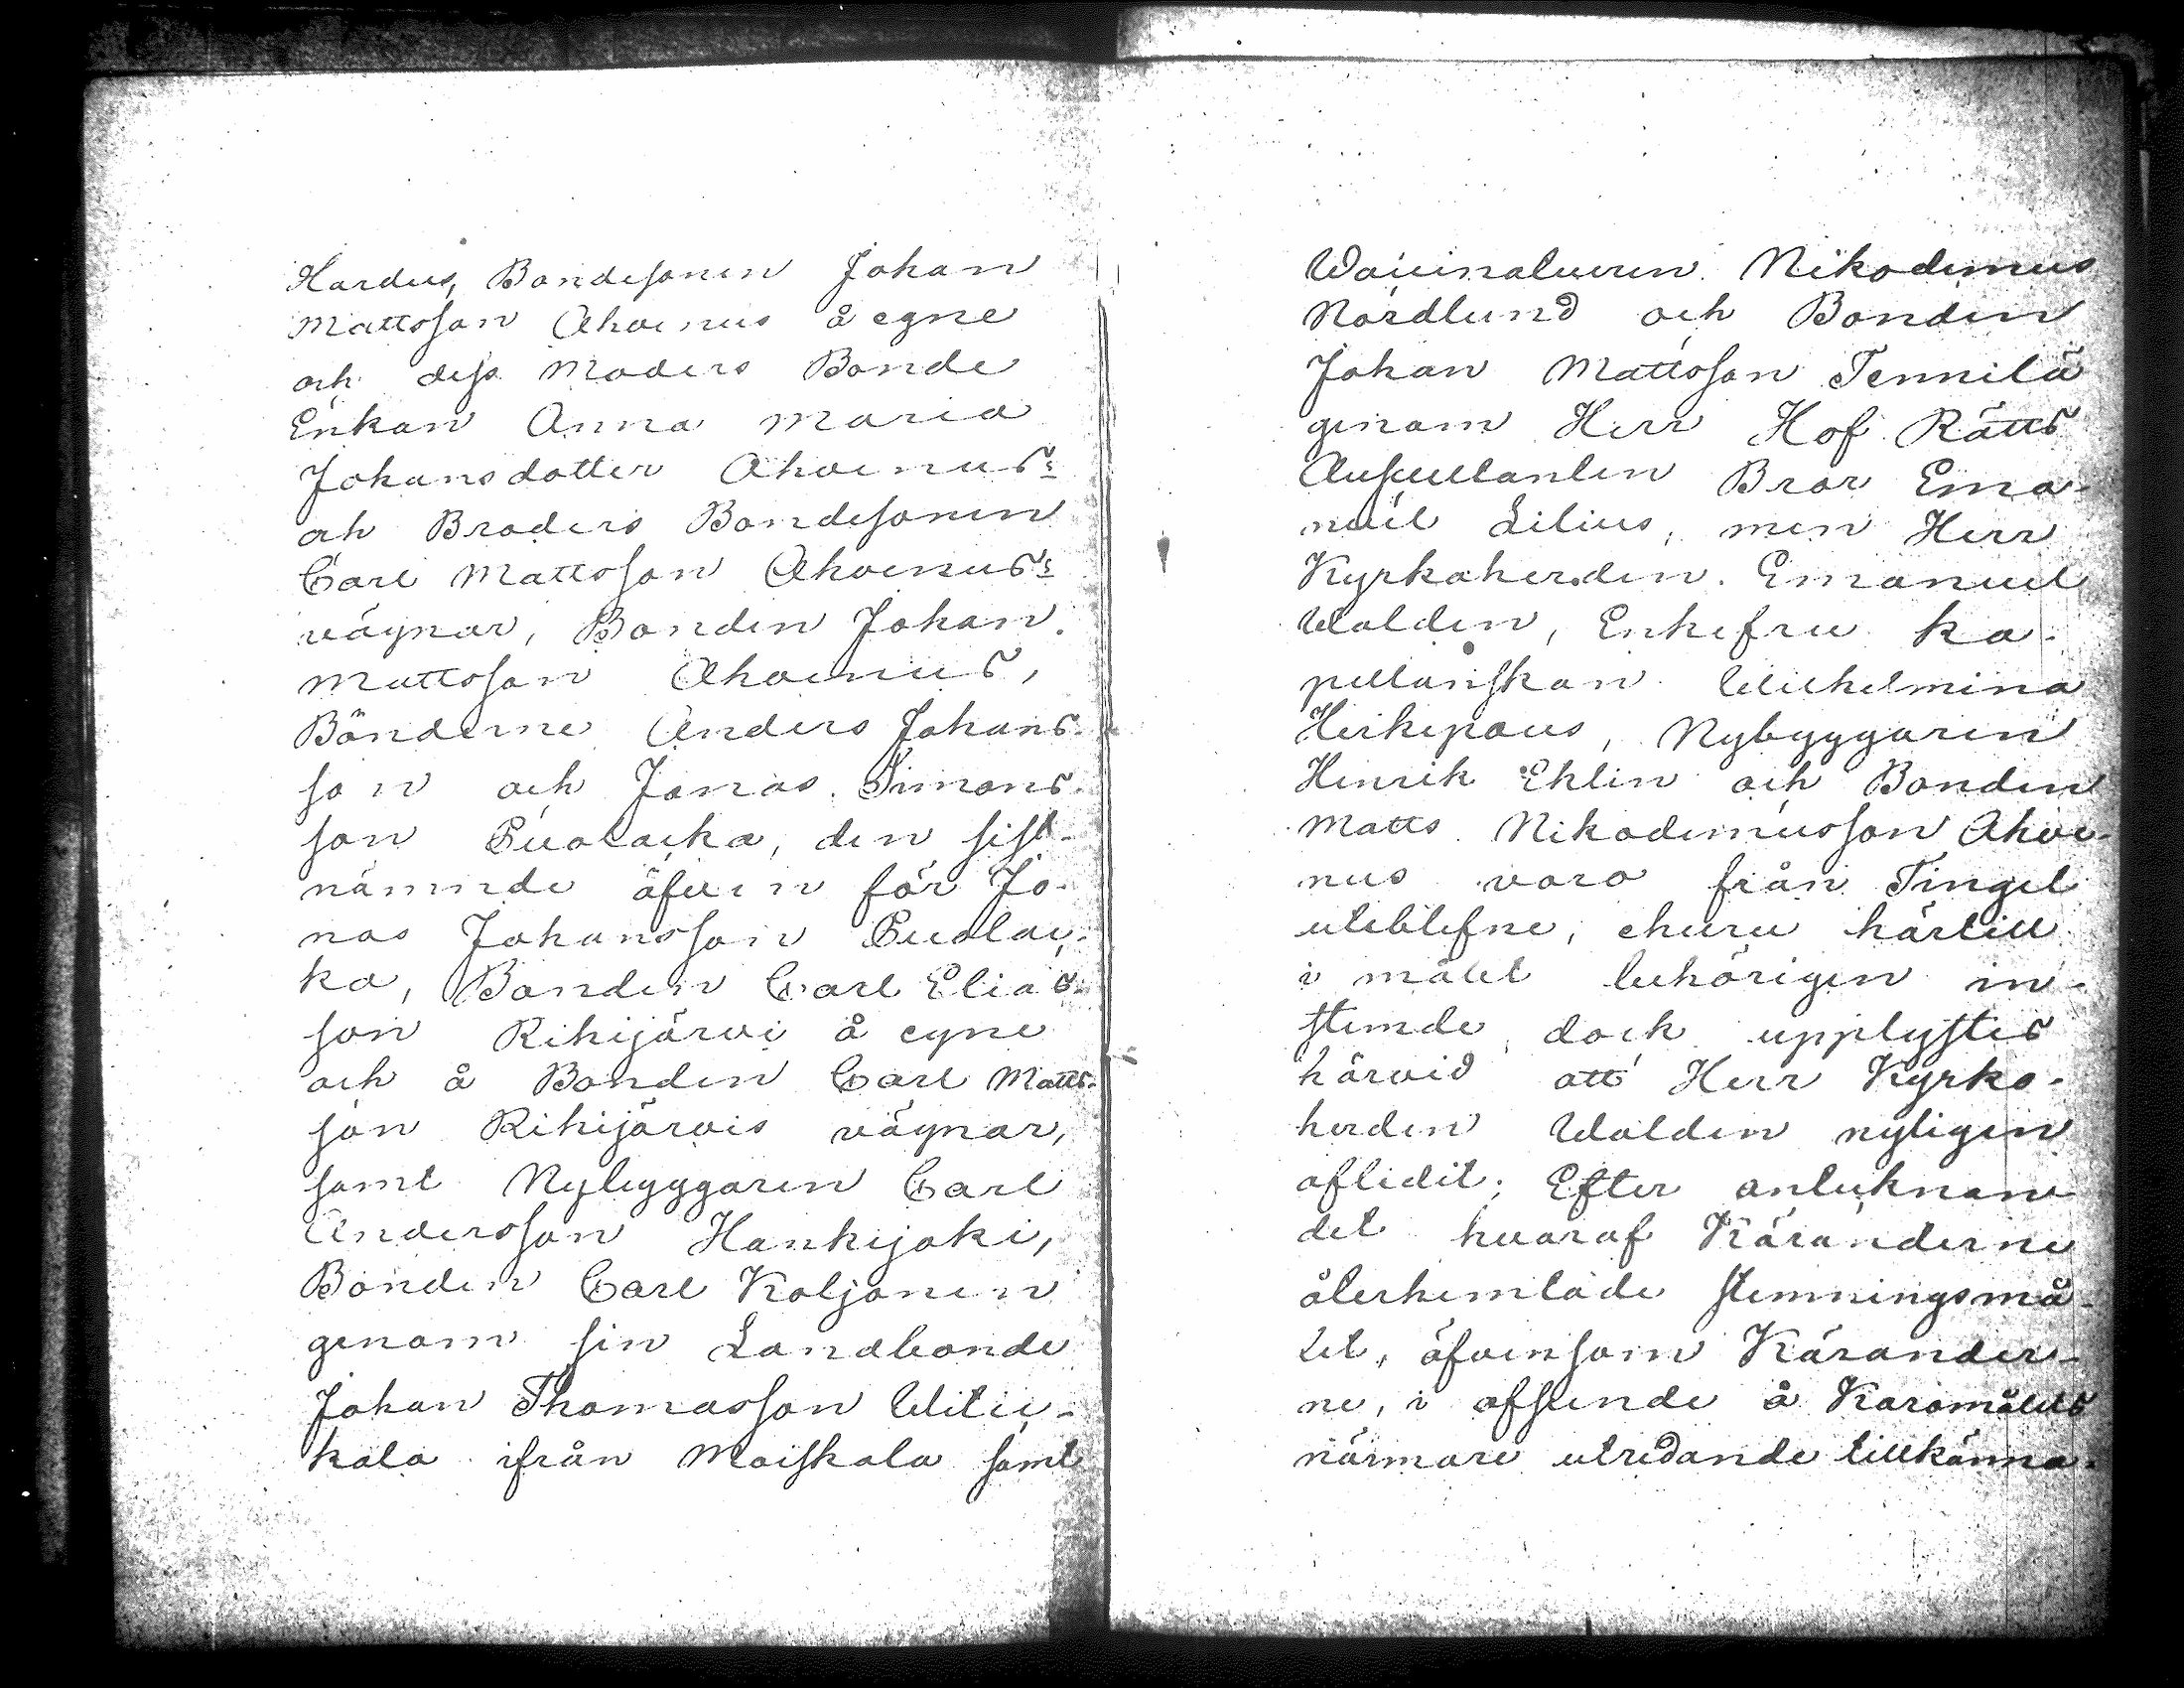 Hardus, Bondesonen Johan
Mattsson Ahvenus å egne
och dess Moders Bonde
Enkan Anna Maria
Johansdotter Ahvenus&#x27;s
och Broders Bondesonen
Carl Mattsson Ahvenus&#x27;s
vägnar, Bonden Johan
Mattsson Ahvenus,
Bönderne Anders Johans-
son och Jonas Simons-
son Puolacka, den sist-
nämnde äfven för Jo-
nas Johansson Puolac-
ka, Bonden Carl Elias-
son Rihijärvi å egne
och å Bonden Carl Matts-
son Rihijärvis vägnar,
samt Nybyggaren Carl
Andersson Hankijoki,
Bonden Carl Koljonen
genom sin Landbonde
Johan Thomasson Witic-
kala ifrån Maiskala samt
Nikodemus
Nordlund och Bonden
Johan Mattsson Tennilä
genom Herr Hof Rätts
Auscultanten Bror Ema-
nuel Lilius, men Herr
Kyrkoherden Emanuel
Walden, Enkefru Ka-
pellanskan Wilhelmina
Heikepous, Nybyggaren
Henrik Ehlin och Bonden
Matts Nikodemusson Ahve-
nus voro från Tinget
uteblefne, ehuru härtill
i målet behörigen in-
stemde, dock upplystes
härvid att Herr Kyrko-
herden Walden nyligen
aflidit; Efter anteknan-
det hvaraf Käranderne
återhemtade stemningsmå-
let, äfvensom Kärander-
ne, i afseende å Käromålets
närmare utredande tillkänna-